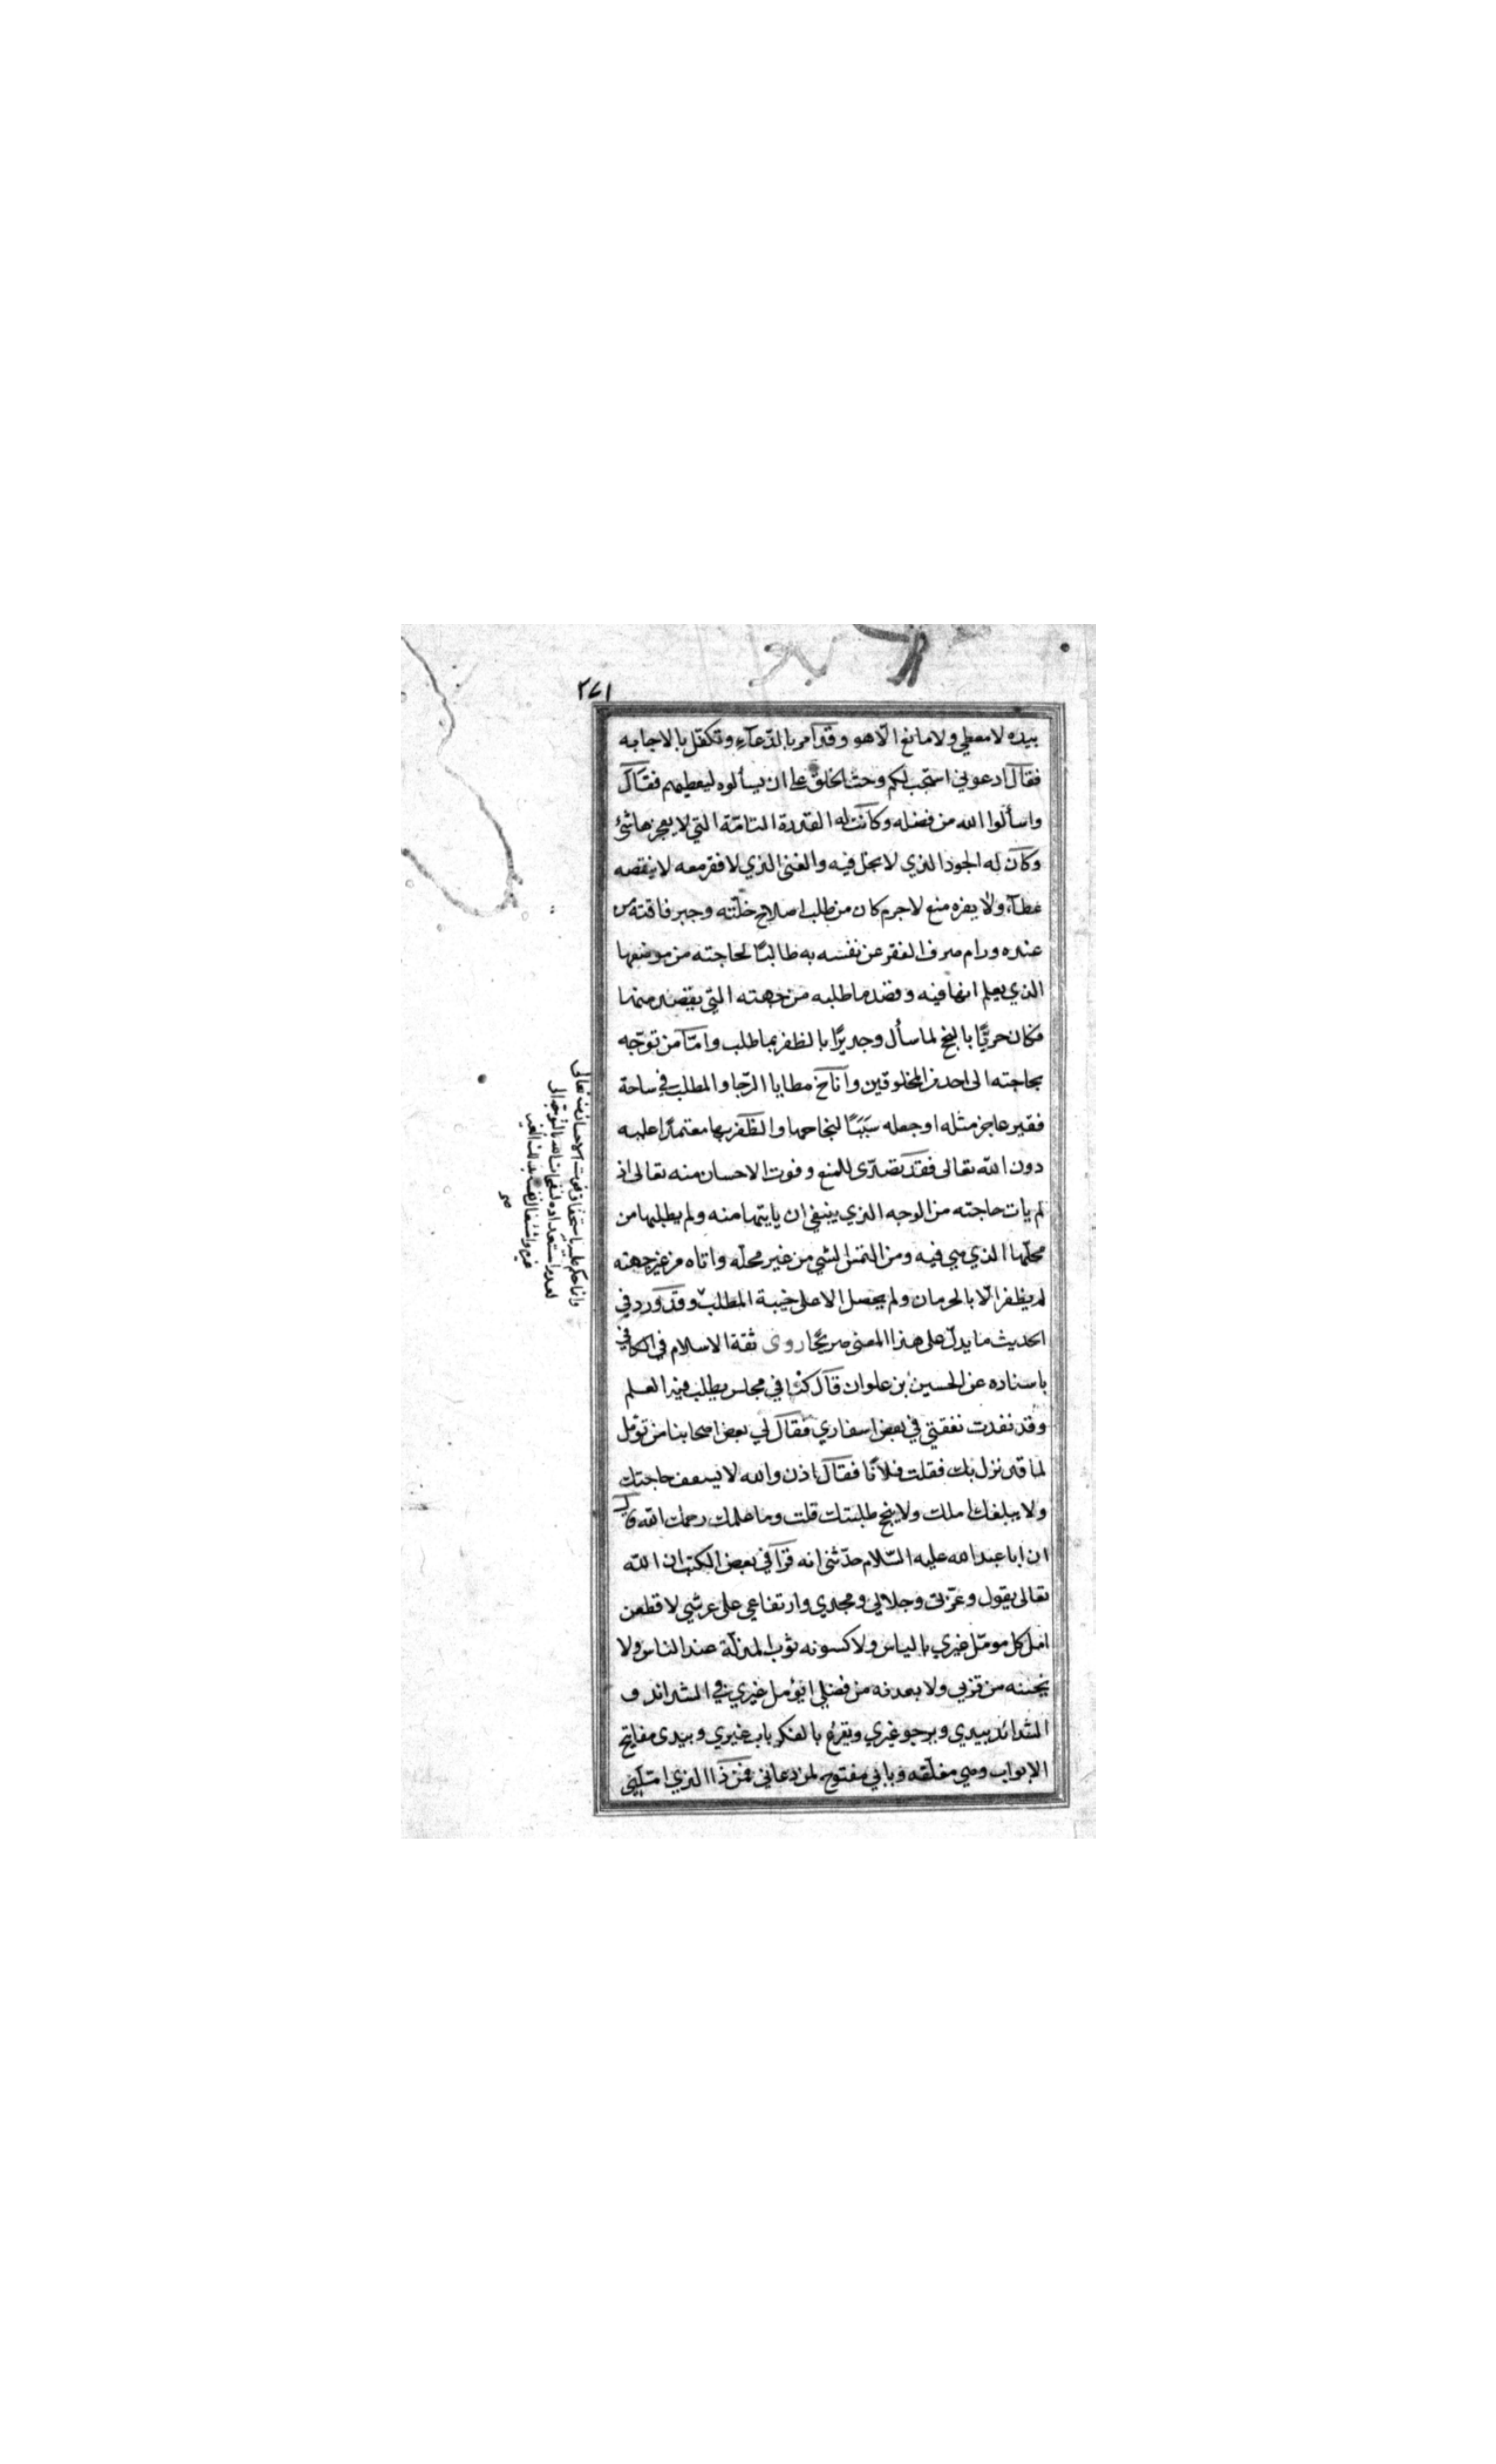 ٢٧١
بيده لا معطي ولا مانع الّا هو وقد امر بالدّعآء وتكفّل بالاجابه
فقال ادعوني استجب لكم وحث الخلق على ان يسألوه ليعطيهم فقال
واسألوا الله من فضله وكانت له القدرة التامّة التي لا يعجزها شئ
وكان له الجود الذي لا بخل فيه والغنى الذي لا فقر معه لا ينقصه
عطآء ولا يفره منع لا جرم كان من طلب اصلاح خلّته وجبر فاقته من
عنده ورام صرف الفقر عن نفسه به طالبًا لحاجته من موضعها
الذي يعلم انها فيه وقصد ما طلبه من جهته التي يقصد منها
فكان حريًّا بالنجح لما سأل وجديرًا بالظفر بما طلب وامّا من توجّه
بحاجته الى احد من المخلوقين واناخ مطايا الرّجا والمطلب في ساحة
فقير عاجز مثله او جعله سَبَبًا لنجاحها والظّفر بها معتمدًا عليه
دون الله تعالى فقد تصدّى للمنع وفوت الاحسان منه تعالى اذ
لم يات حاجته من الوجه الذي ينبغي ان ياتيها منه ولم يطلبها من
محلّها الذي هي فيه ومن التمس الشي من غير محلّه واتاه من غير جهته
لم يظفر الّا بالحرمان ولم يحصل الا على خيبة المطلب وقد ورد في
الحديث ما يدلّ على هذا المعنى صريحًا روى ثقة الاسلام في الكافي
باسناده عن الحسين بن علوان قال كنّا في مجلس يطلب فيه العلم
وقد نفدت نفقتي في بعض اسفاري فقال لي بعض اصحابنا من تؤمّل
لما قد نزل بك فقلت فلانًا فقال اذن والله لا يسعف حاجتك
ولا يبلغك املك ولا ينجح طلبتك قلت وما علمك رحمك الله قال
ان ابا عبد الله عليه السّلام حدّثني انه قرا في بعض الكتب ان الله
تعالى يقول وعزّتي وجلالي ومجدي وارتفاعي على عرشي لاقطعن
امل كل مومّل غيري بالياس ولاكسونه ثوب المذلّة عند الناس ولا
نحينه من قربي ولابعدنه من فضلي ايؤمل غيري في الشدائد و
الشدائد بيدي ويرجو غيري ويقرع بالفكر باب غيري وبيدي مفاتيح
الابواب وهي مغلّقه وبابي مفتوح لمن دعاني فمن ذا الذي امّلني
وانما حكم عليه باستحقاق فوت الاحسان منه تعالى
لعدم استعداده لنفحات الله بالتوجّه الى
غيره واشتغال